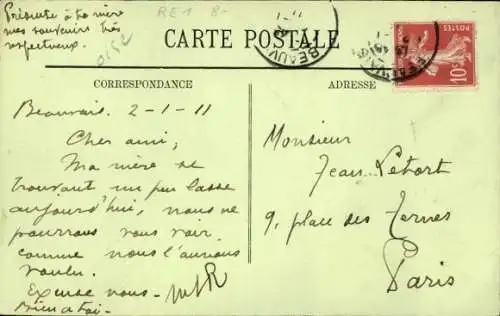 Présente à ta mère
mes souvenirs très
respectueux.
RE1 8-
Oise
CARTE POSTALE
BEAUV
POSTES
10c
CORRESPONDANCE
ADRESSE
Beauvais. 2-1-11
Cher ami,
Ma mère se
trouvant un peu lasse
aujourd'hui, nous ne
pourrons vous voir
comme nous l'aurions
voulu.
Excuse nous.
Bien à toi.
Monsieur
Jean Lebort
9, place des Ternes
Paris